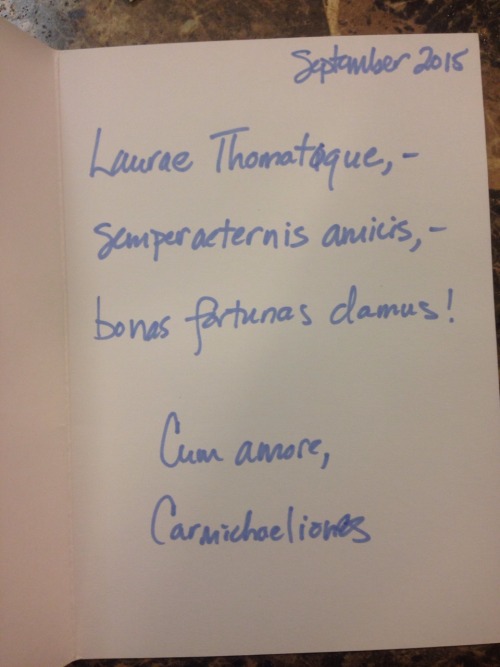 September 2015
Laurae Thomatoque,-
semperaeternis amicis,-
bonas fortunas damus!
Cum amore,
Carmichaeliones